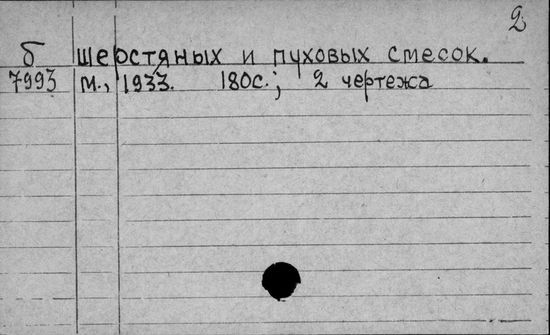 2
б шерстяных и пуховых смесок.
7993 М., 1933. 180с.; 2 чертежа